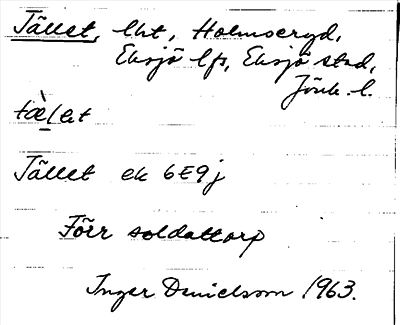 Tället, lht, Holmseryd,
Eksjö lfs, Eksjö stad,
Jönk. l.
tæ̀lət
Tället ek 6E9j
Förr soldattorp
Inger Danielsson 1963.